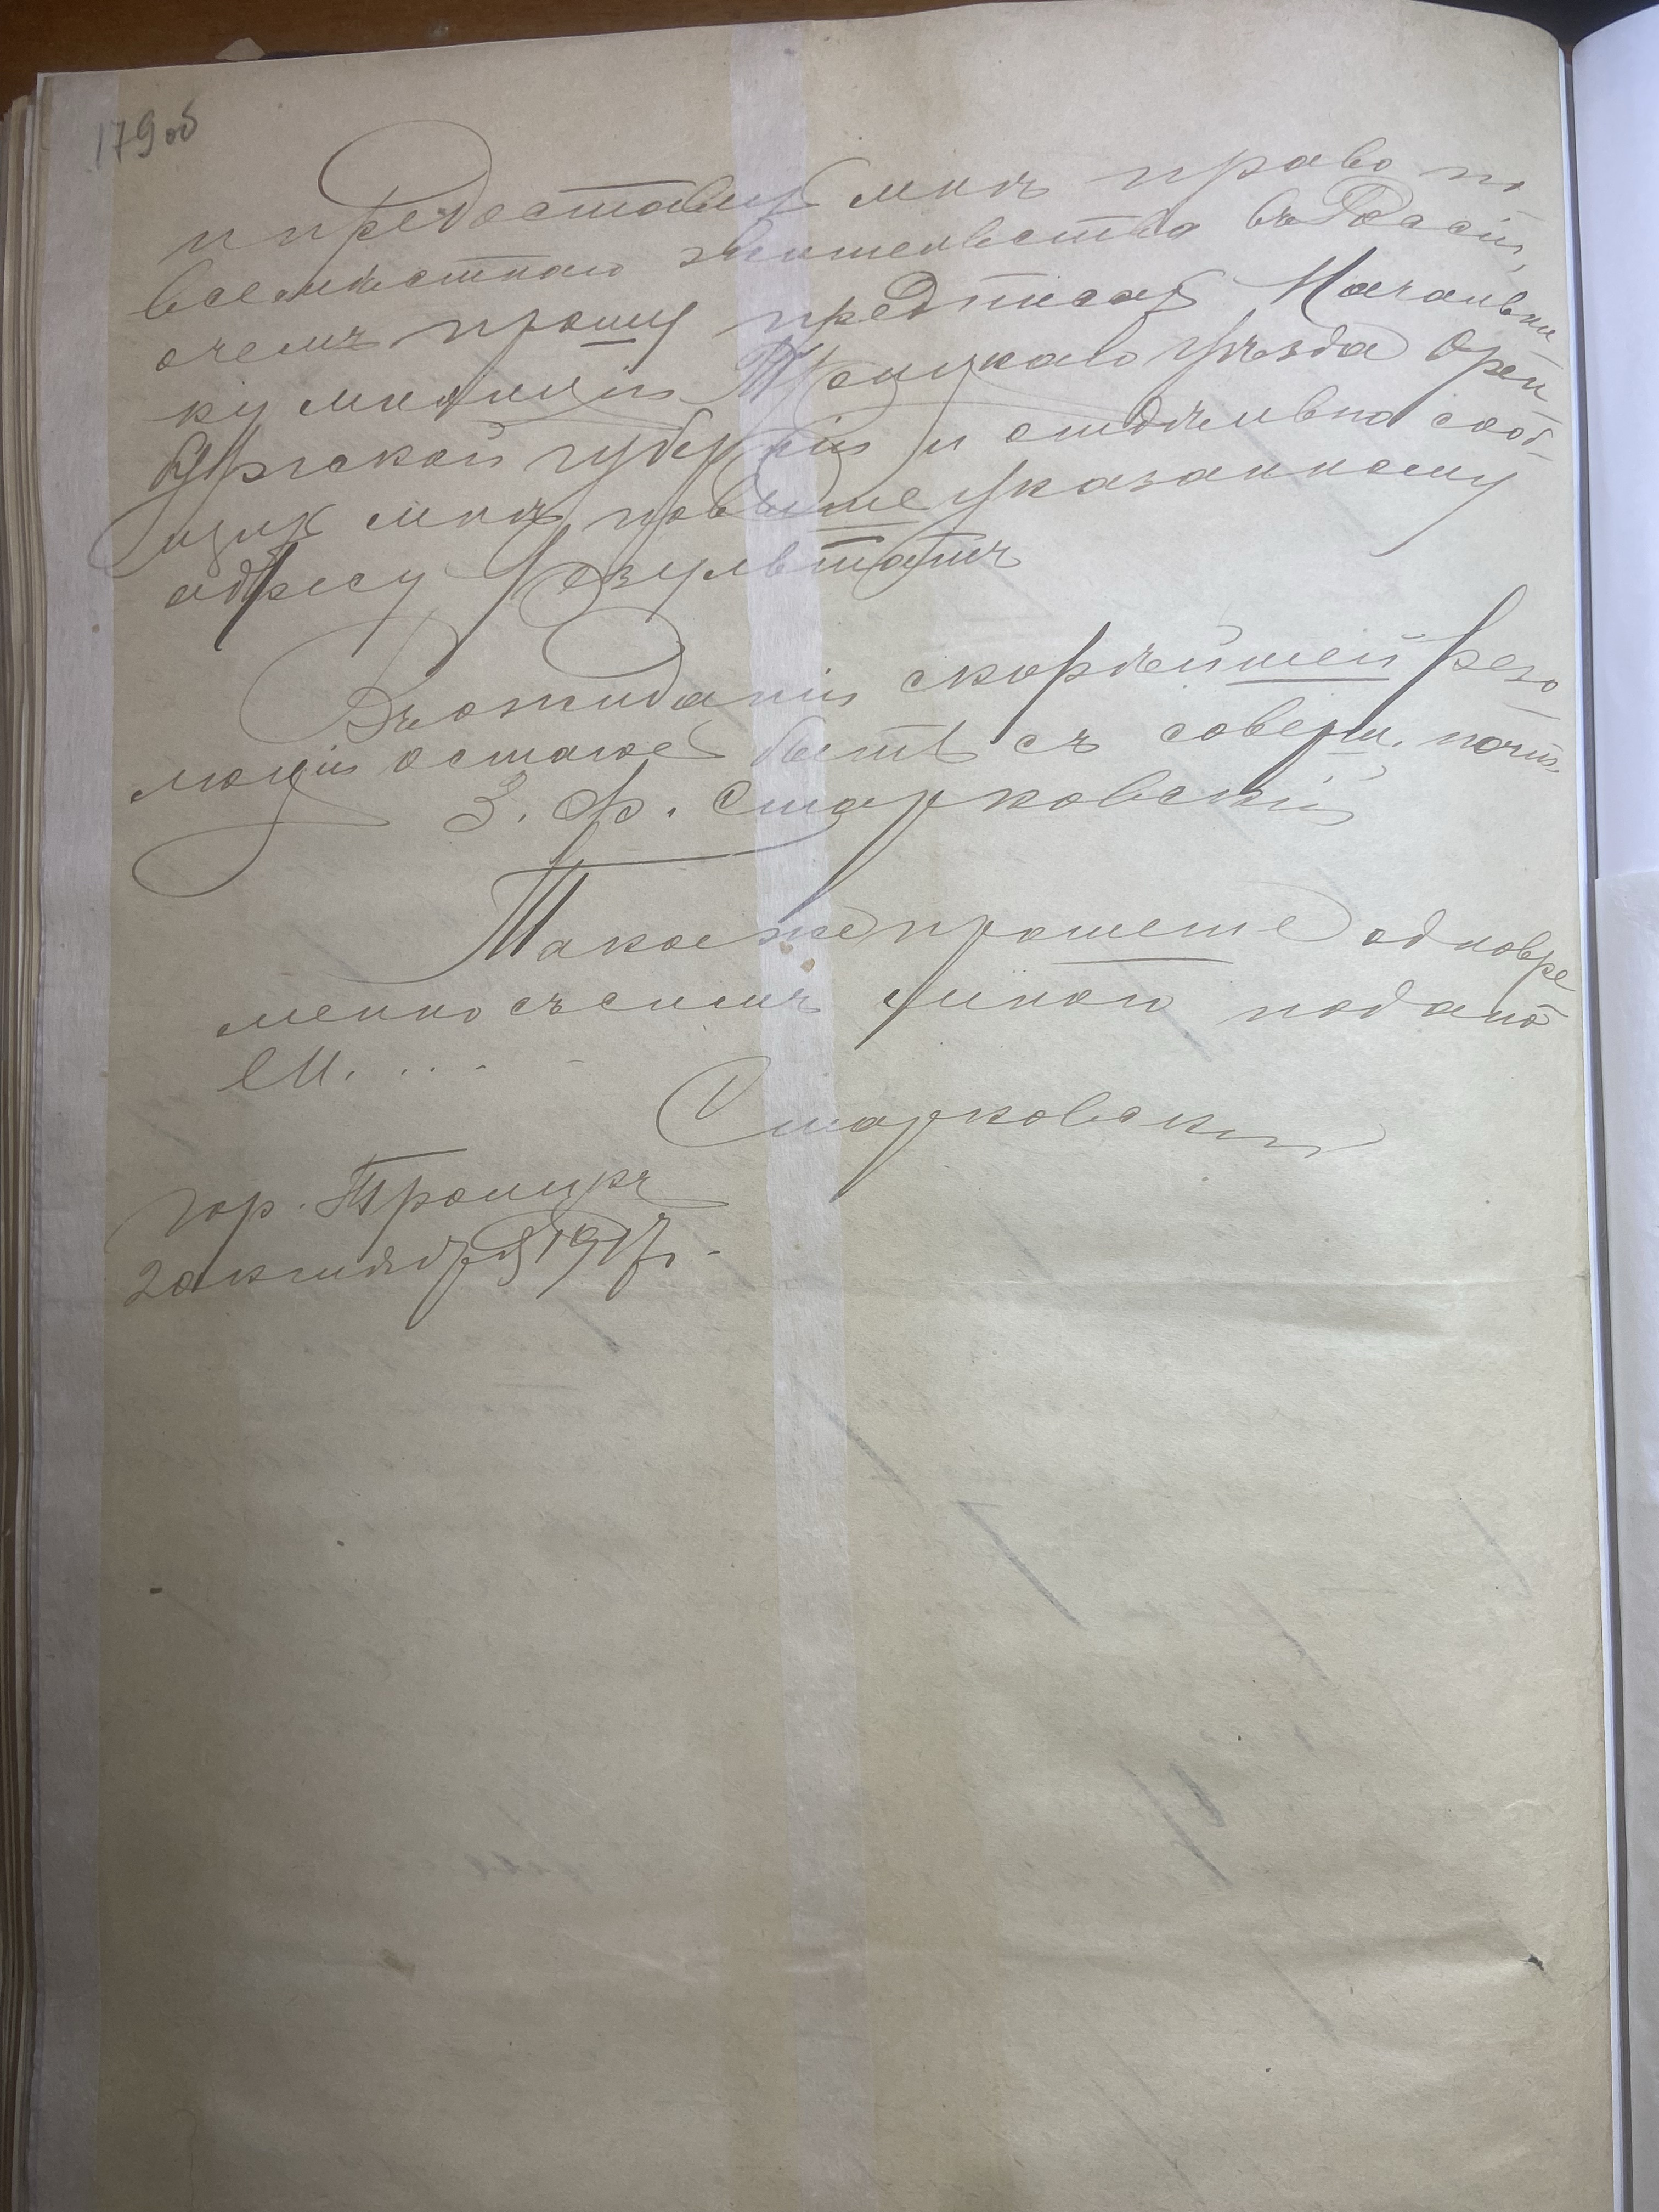 179об
и предоставить мнѣ право по
всемѣстнаго жительства въ Россіи,
о чемъ прошу предписать Начальни
ку милиціи Троицкаго уѣзда Орен
бургской губерніи и отдѣльно сооб-
щить мнѣ по вышеуказанному
адресу о результатѣ
Въ ожиданіи скорѣйшей резо
люціи остаюсь быть съ соверш. почт.
З. Ф. Старковскій
Такое же прошеніе одновре
менно съ симъ мною подано
М. . . . -
Старковскій
гор. Троицкъ
20 октября 1917 г. -